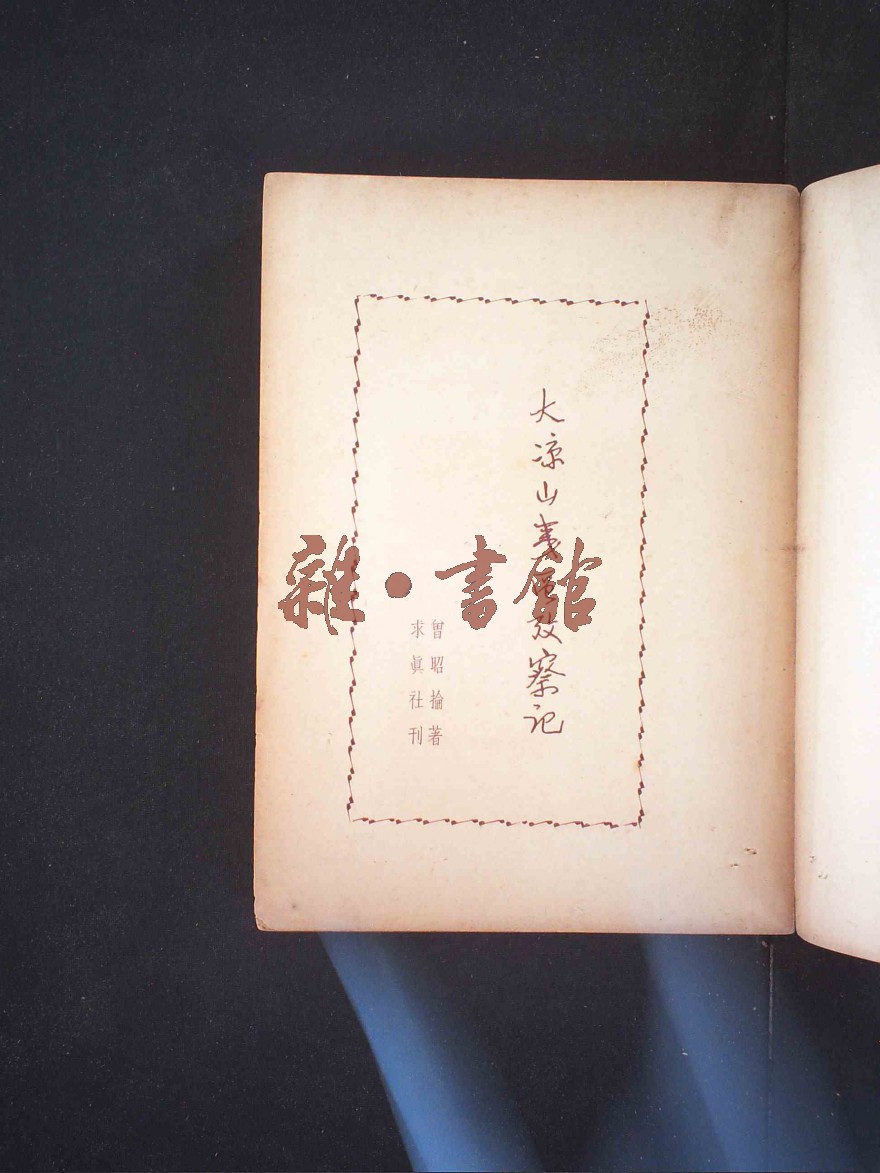 大凉山夷區攷察记
曾昭掄著
求眞社刊
雜·書館